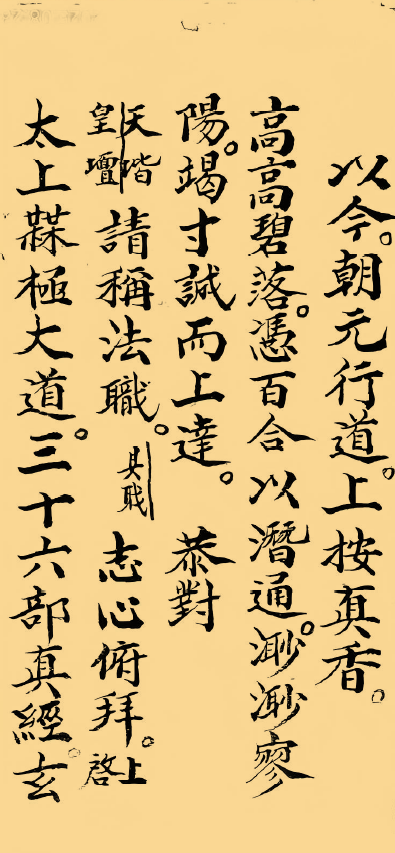 以今。朝元行道。上按真香。
高高碧落。憑百合以潛通。渺渺寥
陽。竭寸誠而上達。 恭對
天階皇壇 請稱法職。具職 志心俯拜。上啓
太上無極大道。三十六部真經。玄